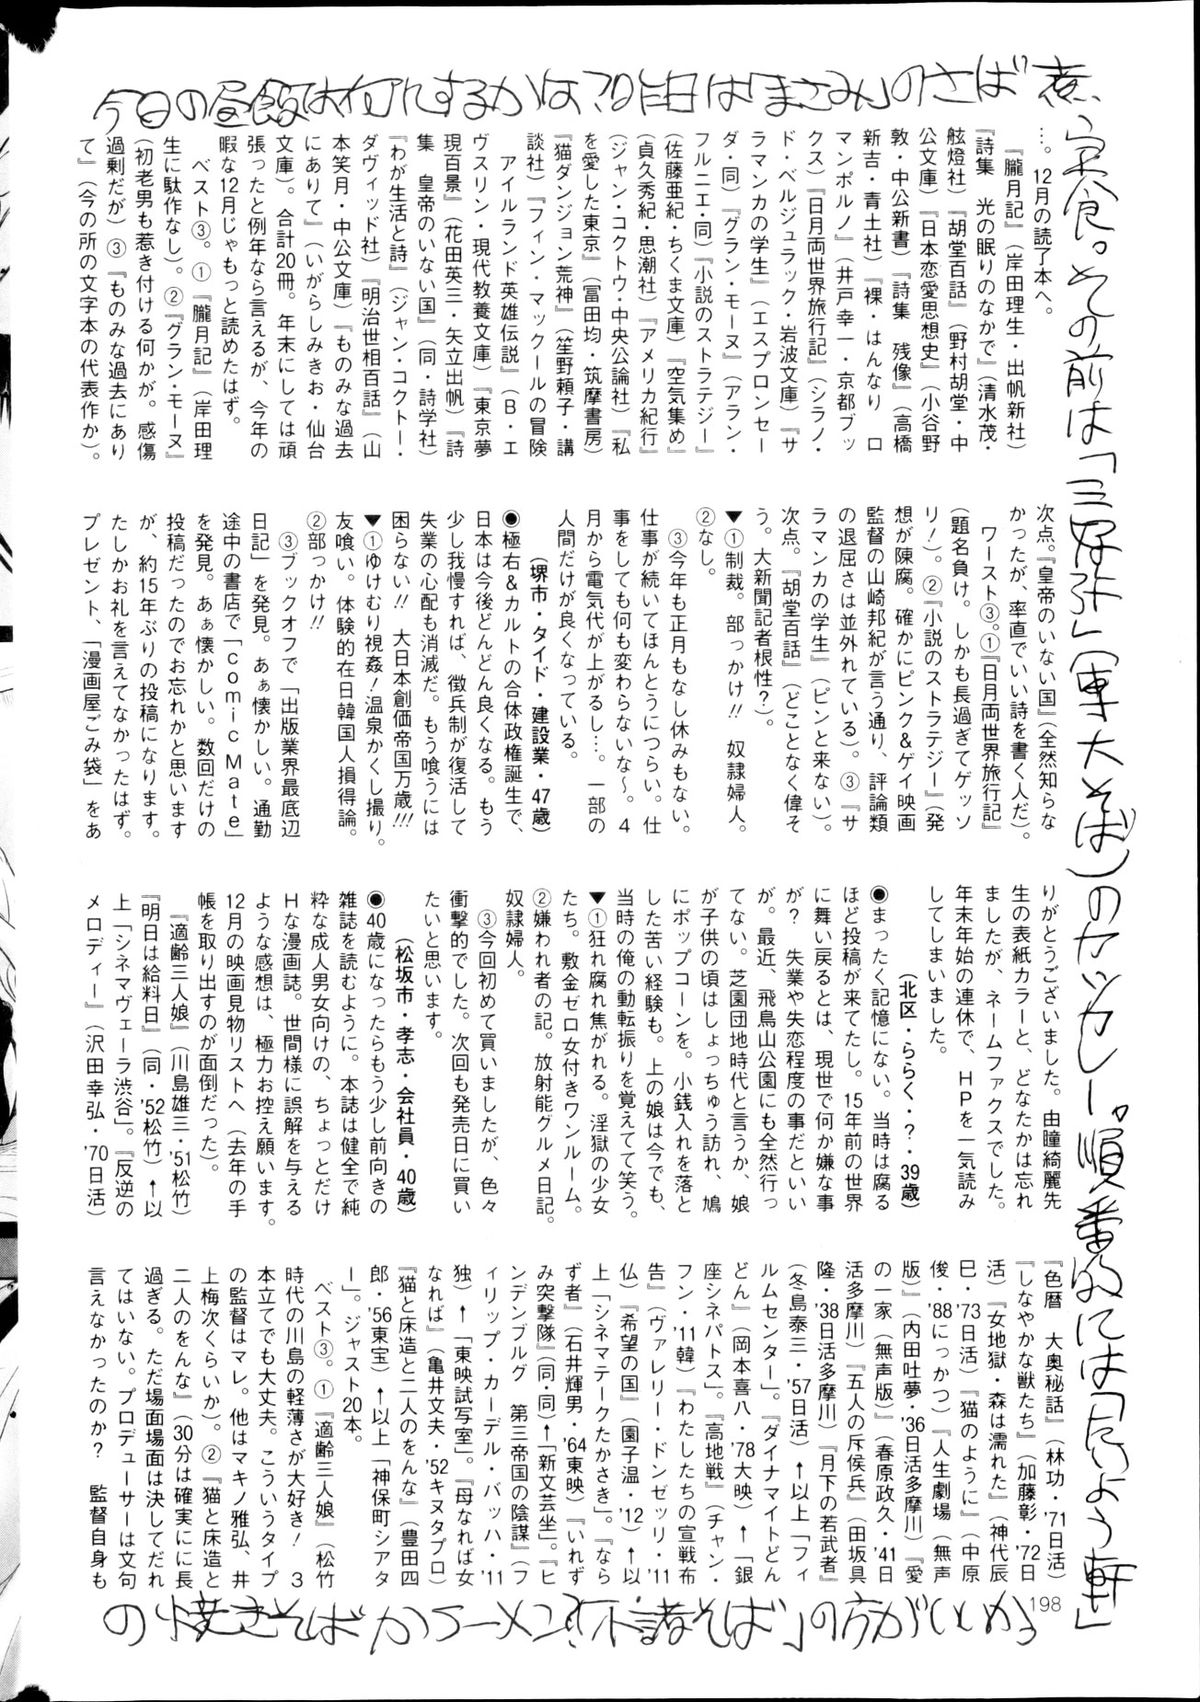 今日の昼飯は何にするかな？昨日は「まさみ」のさば煮
定食。その前は「三好弥」(車大そば)のカツカレー。順番的には「たいよう軒」
の焼きそばかラーメン？「不諸そば」の方がいいかも
…。12月の読了本へ。
『朧月記』(岸田理生・出帆新社)
『詩集　光の眠りのなかで』(清水茂・
舷燈社)『胡堂百話』(野村胡堂・中
公文庫)『日本恋愛思想史』(小谷野
敦・中公新書)『詩集　残像』(高橋
新吉・青土社)『裸・はんなり　ロ
マンポルノ』(井戸幸一・京都ブッ
クス)『日月両世界旅行記』(シラノ・
ド・ベルジュラック・岩波文庫)『サ
ラマンカの学生』(エスプロンセー
ダ・同)『グラン・モーヌ』(アラン・
フルニエ・同)『小説のストラテジー』
(佐藤亜紀・ちくま文庫)『空気集め』
(貞久秀紀・思潮社)『アメリカ紀行』
(ジャン・コクトウ・中央公論社)『私
を愛した東京』(冨田均・筑摩書房)
『猫ダンジョン荒神』(笙野頼子・講
談社)『フィン・マックールの冒険
アイルランド英雄伝説』(B・エ
ヴスリン・現代教養文庫)『東京夢
現百景』(花田英三・矢立出帆)『詩
集　皇帝のいない国』(同・詩学社)
『わが生活と詩』(ジャン・コクトー・
ダヴィッド社)『明治世相百話』(山
本笑月・中公文庫)『ものみな過去
にありて』(いがらしみきお・仙台
文庫)。合計20冊。年末にしては頑
張ったと例年なら言えるが、今年の
暇な12月じゃもっと読めたはず。
ベスト③。①『朧月記』(岸田理
生に駄作なし)。②『グラン・モーヌ』
(初老男も惹き付ける何かが。感傷
過剰だが)③『ものみな過去にあり
て』(今の所の文字本の代表作か)。
次点。『皇帝のいない国』(全然知らな
かったが、率直でいい詩を書く人だ)。
ワースト③。①『日月両世界旅行記』
(題名負け。しかも長過ぎてゲッソ
リ！)。②『小説のストラテジー』(発
想が陳腐。確かにピンク＆ゲイ映画
監督の山崎邦紀が言う通り、評論類
の退屈さは並外れている)。③『サ
ラマンカの学生』(ピンと来ない)。
次点。『胡堂百話』(どことなく偉そ
う。大新聞記者根性？)。
▼①制裁。部っかけ!!　奴隷婦人。
②なし。
③今年も正月もなし休みもない。
仕事が続いてほんとうにつらい。仕
事をしても何も変わらないな〜。4
月から電気代が上がるし…。一部の
人間だけが良くなっている。
(堺市・タイド・建設業・47歳)
◉極右＆カルトの合体政権誕生で、
日本は今後どんどん良くなる。もう
少し我慢すれば、徴兵制が復活して
失業の心配も消滅だ。もう喰うには
困らない!!　大日本創価帝国万歳!!!
▼①ゆけむり視姦！温泉かくし撮り。
友喰い。体験的在日韓国人損得論。
②部っかけ!!
③ブックオフで「出版業界最底辺
日記」を発見。あぁ懐かしい。通勤
途中の書店で「comic Mate」
を発見。あぁ懐かしい。数回だけの
投稿だったのでお忘れかと思います
が、約15年ぶりの投稿になります。
たしかお礼を言えてなかったはず。
プレゼント、「漫画屋ごみ袋」をあ
りがとうございました。由瞳綺麗先
生の表紙カラーと、どなたかは忘れ
ましたが、ネームファックスでした。
年末年始の連休で、HPを一気読み
してしまいました。
(北区・ららく・？・39歳)
◉まったく記憶にない。当時は腐る
ほど投稿が来てたし。15年前の世界
に舞い戻るとは、現世で何か嫌な事
が？　失業や失恋程度の事だといい
が。最近、飛鳥山公園にも全然行っ
てない。芝園団地時代と言うか、娘
が子供の頃はしょっちゅう訪れ、鳩
にポップコーンを。小銭入れを落と
した苦い経験も。上の娘は今でも、
当時の俺の動転振りを覚えてて笑う。
▼①狂れ腐れ焦がれる。淫獄の少女
たち。敷金ゼロ女付きワンルーム。
②嫌われ者の記。放射能グルメ日記。
奴隷婦人。
③今回初めて買いましたが、色々
衝撃的でした。次回も発売日に買い
たいと思います。
(松坂市・孝志・会社員・40歳)
◉40歳になったらもう少し前向きの
雑誌を読むように。本誌は健全で純
粋な成人男女向けの、ちょっとだけ
Hな漫画誌。世間様に誤解を与える
ような感想は、極力お控え願います。
12月の映画見物リストへ(去年の手
帳を取り出すのが面倒だった)。
『適齢三人娘』(川島雄三・'51松竹)
『明日は給料日』(同・'52松竹)↑以
上「シネマヴェーラ渋谷」。『反逆の
メロディー』(沢田幸弘・'70日活)
『色暦　大奥秘話』(林功・'71日活)
『しなやかな獣たち』(加藤彰・'72日
活)『女地獄・森は濡れた』(神代辰
巳・'73日活)『猫のように』(中原
俊・'88にっかつ)『人生劇場(無声
版)』(内田吐夢・'36日活多摩川)『愛
の一家(無声版)』(春原政久・'41日
活多摩川)『五人の斥候兵』(田坂具
隆・'38日活多摩川)『月下の若武者』
(冬島泰三・'57日活)↑以上「フィ
ルムセンター」。『ダイナマイトどん
どん』(岡本喜八・'78大映)↑「銀
座シネパトス」。『高地戦』(チャン・
フン・'11韓)『わたしたちの宣戦布
告』(ヴァレリー・ドンゼッリ・'11
仏)『希望の国』(園子温・'12)↑以
上「シネマテークたかさき」。『なら
ず者』(石井輝男・'64東映)『いれず
み突撃隊』(同・同)↑「新文芸坐」。『ヒ
ンデンブルグ　第三帝国の陰謀』(フ
ィリップ・カーデル・バッハ・'11
独)↑「東映試写室」。『母なれば女
なれば』(亀井文夫・'52キヌタプロ)
『猫と床造と二人のをんな』(豊田四
郎・'56東宝)↑以上「神保町シアタ
ー」。ジャスト20本。
ベスト③。①『適齢三人娘』(松竹
時代の川島の軽薄さが大好き！　3
本立てでも大丈夫。こういうタイプ
の監督はマレ。他はマキノ雅弘、井
上梅次くらいか)。②『猫と床造と
二人のをんな』(30分は確実にに長
過ぎる。ただ場面場面は決してだれ
てはいない。プロデューサーは文句
言えなかったのか？　監督自身も
198